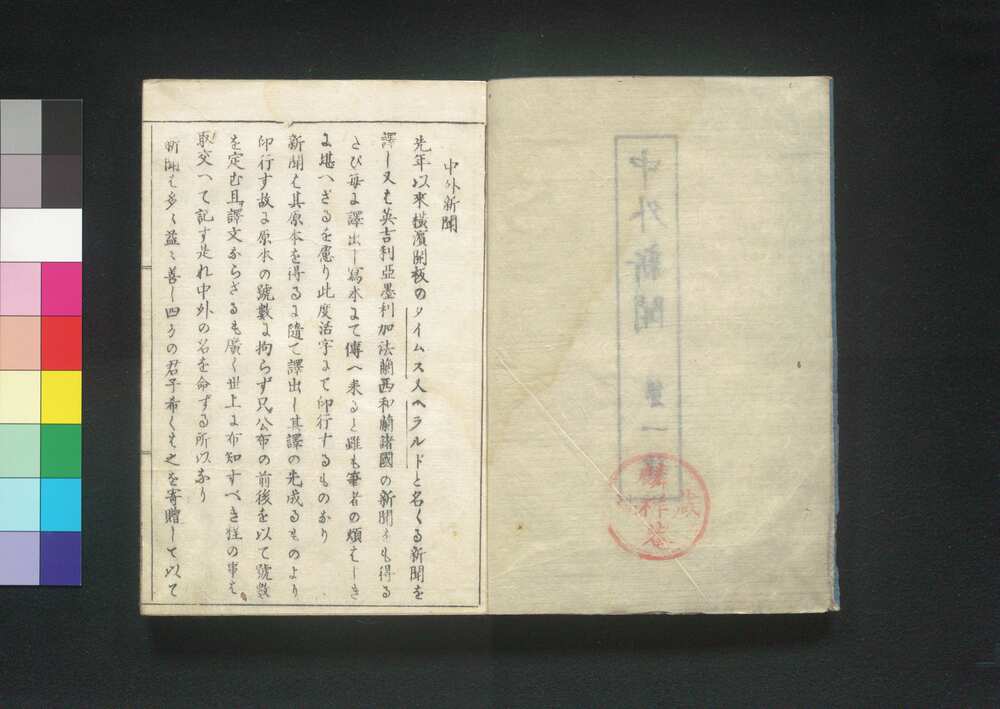 中外新聞 第一號
中外新聞
先年以來橫濱開板のタイムス又ヘラルドと名くる新聞を
譯し又は英吉利亞墨利加法蘭西和蘭諸國の新聞をも得る
たび每に譯出し寫本にて傳へ來ると雖も筆者の煩はしき
に堪へざるを慮り此度活字にて印行するものなり
新聞は其原本を得るに隨て譯出し其譯の先成るものより
印行す故に原本の號數に拘らず只公布の前後を以て號數
を定む且譯文ならざるも廣く世上に布知すべき程の事は
取交へて記す是れ中外の名を命ずる所以なり
新聞は多々益々善し四方の君子希くは之を寄贈して以て